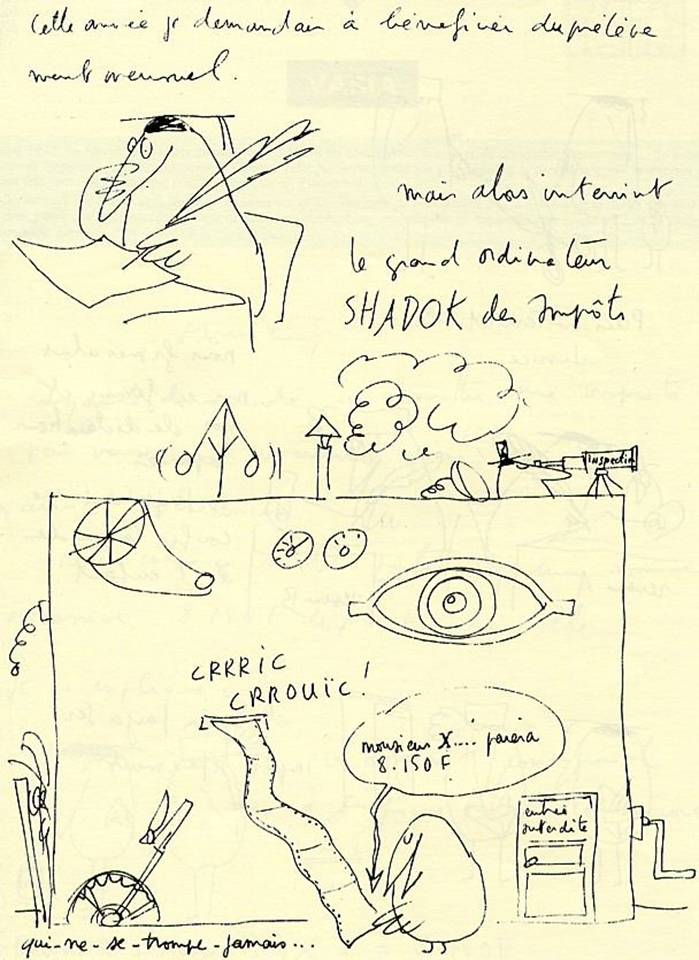 Cette année je demandais à bénéficier du prélève
ment mensuel.
mais alors intervint
le grand ordinateur
SHADOK des Impôts
inspection
CRRRIC
CRROUÏC!
monsieur X.... paiera
8.150 F.
entrée
interdite
qui-ne-se-trompe-jamais...